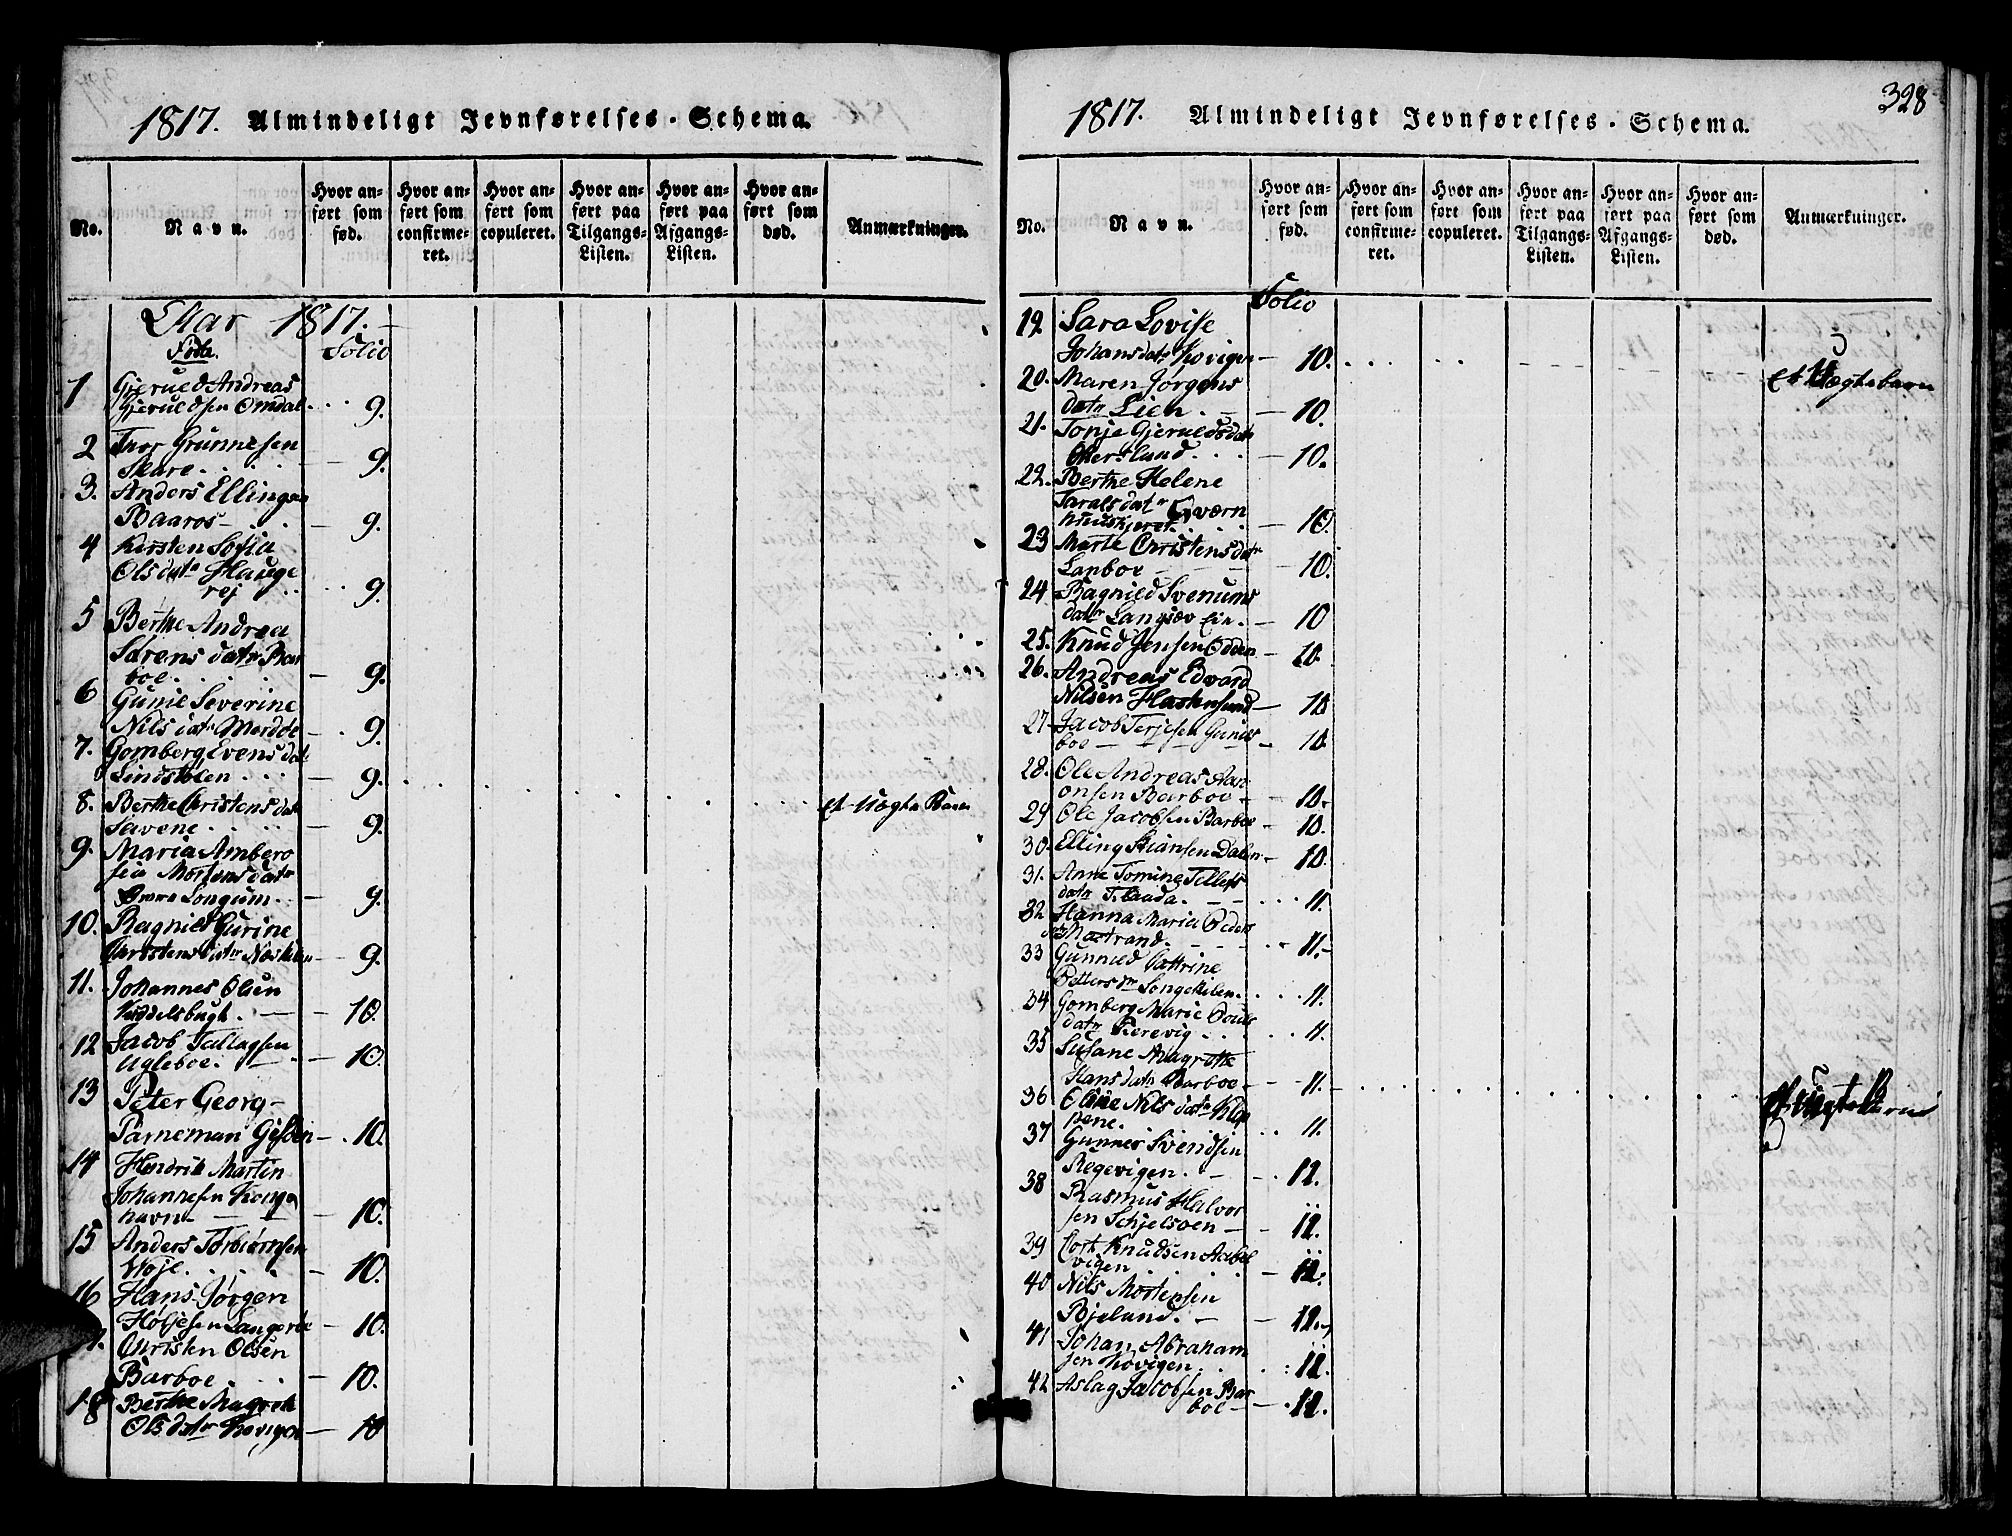 1817. Almindeligt Jevnførelses-Schema.
No.
Navn.
Hvor an-
ført som
fød.
Hvor an-
ført som
confirme-
ret.
Hvor an-
ført som
copuleret.
Hvor an-
ført paa
Tilgangs-
Listen.
Hvor an-
ført paa
Afgangs-
Listen.
Hvor an-
ført som
død.
Anmærkninger.
Aar 1817.
Føde. Folio
1 Gjerueld Andreas
Gjerueldsen Omdal 9.
2 Thor Grunnesen
Skare 9.
3. Anders Ellingsen
Baaros 9.
4 Kirsten Sofia
Olsdatr Hauge
rej 9.
5 Berthe Andrea
Sørens datr Bar
boe 9.
6 Gunie Severine
Nils datr Merdoe 9.
7. Gomberg Evens dat
Lindstølen 9.
8. Berthe Christens dat
Savene 9. et uægte Barn
9. Maria Ambero
sia Mortens datr
Longum 9.
10. Ragnild Gurine
Christens datr Neskilen 9.
11. Johannes Olsen
Kiddelsbugt 10.
12 Jacob Tallagsen
Ugleboe 10.
13 Peter Georg
Parneman Gesden 10.
14 Hendrik Martin
Johannesen Konge
havn 10.
15 Anders Torbiørnsen
Woje 10.
16 Hans Jørgen
Høljesen Langerøe 10.
Christen Olsen
Barboe 10.
18 Berthe Magrete
Ols datr Hovigen 10
328
1817. Almindeligt Jevnførelses-Schema.
No.
Navn.
Hvor an-
ført som
fød.
Hvor an-
ført som
confirme-
ret.
Hvor an-
ført som
copuleret.
Hvor an-
ført paa
Tilgangs-
Listen.
Hvor an-
ført paa
Afgangs-
Listen.
Hvor an-
ført som
død.
Anmærkninger.
Folio
19 Sara Lovise
Johansdatr Hovigen 10.
20. Maren Jørgens et Uægte barn
datr Lien 10.
21. Tonje Gjerueldsdatr
Otterslund 10.
22. Berthe Helene
Taralsdatr Qværn
huuskjeret 10.
23 Marte Christensdatr
Lanboe 10.
24 Ragnild Svenums
datr Langsæv Eie 10
25. Knud Jensen Odden 10.
26. Andreas Edvard
Nilsen Hastensund 10
27 Jacob Terjesen Gunils
boe 10.
28. Ole Andreas Aan
onsen Barboe 10.
29 Ole Jacobsen Barboe 10.
30. Elling Stiansen Dalen 10.
31. Anne Tomine Tellefs
datr 11.
32 Hanna Maria Peders
Mostrand 11.
33 Gunnild Cattrine
Petters Songekilen 11.
34 Gomberg Marie Pouls
datr Rerevig 11.
35 Susane Magrette
Hansdatr Barboe 11. et uægte Barn
36 Oline Nils datr Klep
pene 11.
37 Gunner Svendsen
Regevigen 11.
38 Rasmus Halvor
sen Schjelsøen 11.
39 Cort Knudsen Aabel
vigen 11.
40 Nils Mortensen
Bjelland 11.
41 Johan Abraham
sen Hovigen 11.
42 Aslag Jacobsen Bar
boe 11.